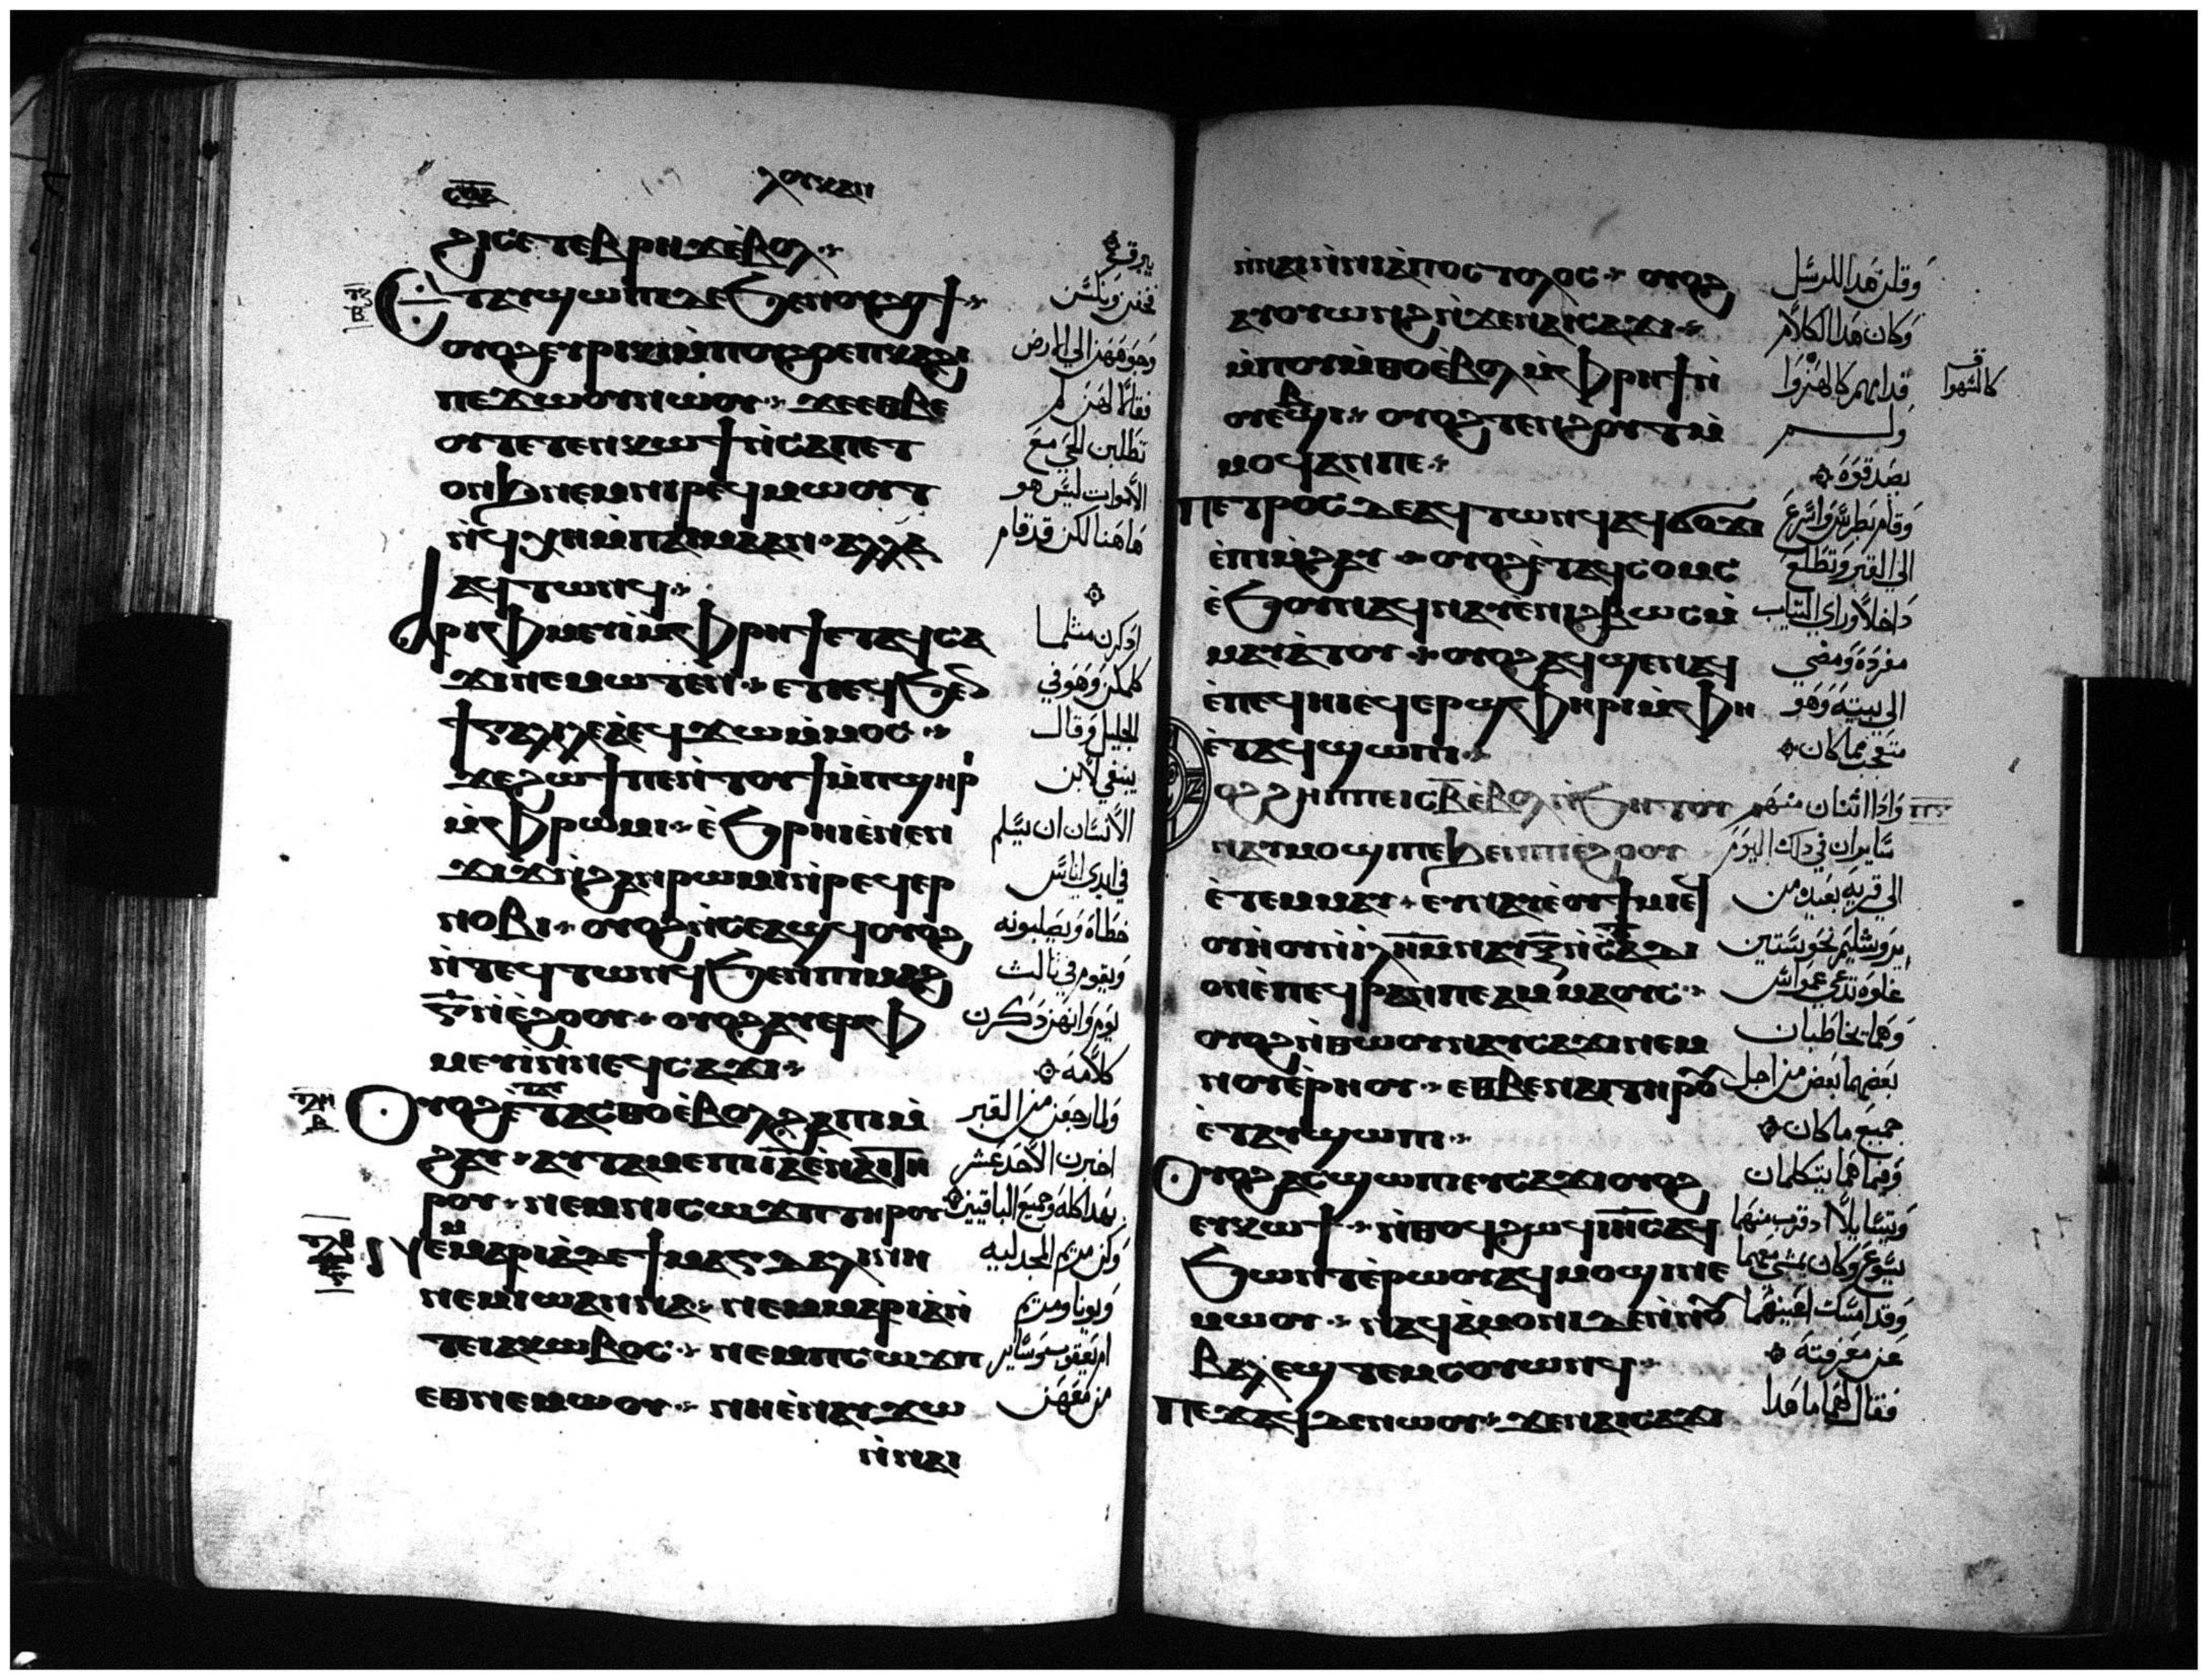 ⲗⲟⲩⲕⲁⲛ
ϩⲓⲥⲉⲧⲉⲃⲣⲏϫⲉ̀ⲃⲟⲗ
ⲉⲧⲁⲩϣⲱⲡⲓⲇⲉϧⲉⲛⲟⲩϩⲟϯ
ⲟⲩⲟϩⲉⲩⲣⲓⲕⲓⲙ̀ⲡⲟⲩϩⲟⲉⲡⲕⲁϩⲓ
ⲡⲉϫⲱⲟⲩⲛⲱⲟⲩ ϫⲉⲉⲑⲃⲉ
ⲟⲩⲧⲉⲧⲉⲛⲕⲱϯⲛ̀ⲥⲁⲡⲉⲧ
ⲟⲛϧⲛⲉⲙⲛⲓⲣⲉϥⲙⲱⲟⲩⲧ
ⲛ̀ϥⲭⲏⲙ̀ⲡⲁⲓⲙⲁⲁⲛ ⲁⲗⲗⲁ
ⲁϥⲧⲱⲛϥ
ⲁⲣⲓⲫⲙⲉⲩⲓ̀ⲙ̀ⲫⲣⲏϯⲉⲧⲁϥⲥⲁ
ϫⲓⲛⲉⲙⲱⲧⲉⲛ ⲉⲧⲓⲉϥϧⲉⲛ
ϯⲅⲁⲗⲓⲗⲉⲁ̀ⲉϥϫⲱⲙ̀ⲙⲟⲥ
ϫⲉϩⲱϯⲡⲉⲛ̀ⲧⲟⲩϯⲙ̀ⲡϣⲏⲣⲓ
ⲙ̀ⲫⲣⲱⲙⲓ ⲉ̀ϧⲣⲏⲓⲉ̀ⲛⲉⲛ
ϫⲓϫⲛ̀ϩⲁⲛⲣⲱⲙⲓⲛ̀ⲣⲉϥⲉⲣ
ⲛⲟⲃⲓ ⲟⲩⲟϩⲛ̀ⲥⲉⲁϣϥⲟⲩⲟϩ
ⲛ̀ⲧⲉϥⲧⲱⲛϥϧⲉⲛⲡⲓⲙⲁϩ
ⲅ̅ⲛ̀ⲉ̀ϩⲟⲟⲩ ⲟⲩⲟϩⲁⲩⲉⲣⲫ
ⲙⲉⲩⲓ̀ⲛ̀ⲛⲉϥⲥⲁϫⲓ
ⲟⲩⲟϩⲉ̀ⲧⲁⲥⲑⲟⲉ̀ⲃⲟⲗϩⲁⲡⲓⲙ̀
ϩⲁⲩ ⲁⲩⲧⲁⲙⲉⲡⲓⲓ̅ⲁ̅ⲉ̀ⲛⲁⲓⲧⲏ
ⲣⲟⲩ ⲛⲉⲙⲛⲓⲥⲱϫⲡⲧⲏⲣⲟⲩ
ⲛⲉⲙⲁⲣⲓⲁ̀ⲇⲉϯⲙⲁⲅⲇⲁⲗⲓⲛⲏ
ⲛⲉⲙⲓⲱⲁⲛⲛⲁ ⲛⲉⲙⲙⲁⲣⲓⲁ̀ⲛ̀
ⲧⲉⲓⲁⲕⲱⲃⲟⲥ ⲛⲉⲙⲡⲥⲱϫⲡ
ⲉⲑⲛⲉⲙⲱⲟⲩ ⲛⲏⲉ̀ⲛⲁⲩϫⲱ
ⲛ̀ⲛⲁⲓ
يبرق
فخفن ونكسن
وجوههن الي الارض
فقالا لهن لم
تطلبن الحي مع
الاموات ليس هو
هاهنا لكن قد قام
اذكرن مثلما
كلمكن وهو في
الجليل وقال
ينبغي لابن
الانسان ان يسلم
في ايدي اناس
خطاة ويصلبونه
ويقوم في ثالث
يوم وانهن ذكرن
كلامه
ولما رجعن من القبر
اخبرن الاحد عشر
بهذا كله وجميع الباقيين
وكن مريم المجدليه
ويونا ومريم
ام يعقوب وساير
من معهن
ⲛ̀ⲛⲁⲓⲛ̀ⲛⲓⲁ̀ⲡⲟⲥⲧⲟⲗⲟⲥ ⲟⲩⲟϩ
ⲁⲩⲟⲩⲱⲛϩⲛ̀ϫⲉⲛⲁⲓⲥⲁϫⲓ
ⲙ̀ⲡⲟⲩⲙ̀ⲑⲟⲉ̀ⲃⲟⲗⲙ̀ⲫⲣⲏϯⲛ̀
ⲟⲩⲉⲃϣⲓ ⲟⲩⲟϩⲧⲉⲛϩⲟⲩⲧⲙ̀
ⲙⲟϥⲁⲛⲡⲉ
ⲡⲉⲧⲣⲟⲥⲇⲉⲁϥⲧⲱⲛϥⲁϥϭⲟϫⲓ
ⲉ̀ⲡⲓⲙ̀ϩⲁⲩ ⲟⲩⲟϩⲉ̀ⲧⲁϥⲥⲟⲙⲥ
ⲉ̀ϧⲟⲩⲛⲁϥⲛⲁⲩⲉ̀ⲛⲓϩⲃⲱⲥⲙ̀
ⲙⲁⲩⲁ̀ⲧⲟⲩ ⲟⲩⲟϩⲁϥϣⲉⲛⲁϥ
ⲉ̀ⲡⲉϥⲏⲓⲉ̀ϥⲉⲣϣⲫⲏⲣⲓⲙ̀ⲫⲏ
ⲉ̀ⲧⲁϥϣⲱⲡⲓ
ⲟϩϩⲏⲡⲡⲉⲓⲥⲃ̅ⲉ̀ⲃⲟⲗⲛ̀ϧⲏⲧⲟⲩ
ⲛⲁⲩⲙⲟϣⲓⲡⲉϧⲉⲛⲡⲓⲉ̀ϩⲟⲟⲩ
ⲉ̀ⲧⲉⲙⲙⲁⲩ ⲉⲩⲛⲁⲉ̀ⲟⲩϯⲙⲓ
ⲟⲩⲏⲟⲩⲛ̀ⲓ̀ⲗ̅ⲏ̅ⲙ̅ⲛⲁⲩⲝ̅ⲛ̀ⲥⲧⲁⲇⲓ
ⲟⲛⲉ̀ⲡⲉϥⲣⲁⲛⲡⲉⲁⲙⲙⲁⲟⲩⲥ
ⲟⲩⲟϩⲛ̀ⲑⲱⲟⲩⲛⲁⲩⲥⲁϫⲓⲛⲉⲙ
ⲛⲟⲩⲉ̀ⲣⲏⲟⲩ ⲉⲑⲃⲉⲛⲁⲓⲧⲏⲣⲟⲩ
ⲉ̀ⲧⲁⲩϣⲱⲡⲓ
ⲟⲩⲟϩⲁⲥϣⲱⲡⲓⲉⲩⲥⲁϫⲓⲟⲩⲟϩ
ⲉⲩⲕⲱϯ ⲛ̀ⲑⲟϥϩⲱϥⲓ̅ⲏ̅ⲥ̅ⲁϥ
ϧⲱⲛⲧⲉ̀ⲣⲱⲟⲩⲁϥⲙⲟϣⲓⲛⲉ
ⲙⲱⲟⲩ ⲛⲁϥⲁ̀ⲙⲟⲛⲓⲇⲉⲛ̀ⲛⲟⲩ
ⲃⲁⲗⲉϣⲧⲉⲙⲥⲟⲩⲱⲛϥ
ⲡⲉϫⲁϥⲇⲉⲛⲱⲟⲩ ϫⲉⲛⲁⲓⲥⲁϫⲓ
وقلن هذا للرسل
وكان هذا الكلام
قدامهم كالهزوا
كالسهوا
ولم
يصدقوه
وقام بطرس واسرع
الي القبر وتطلع
داخلا وراي الثياب
مفرده ومضي
الي بيته وهو
متعجب مما كان
واذا اثنان منهم
سايران في ذلك اليوم
الي قريه بعيده من
يروشليم نحو ستين
غلوه تدعي عمواس
وهما يخاطبان
بعضهما بعض من اجل
جميع ما كان
وفيما هما يتكلمان
ويتسايلا اذ قرب منهما
يسوع وكان يمشي معهما
وقد امسكت اعينهما
عن معرفته
فقال لهما ما هذا